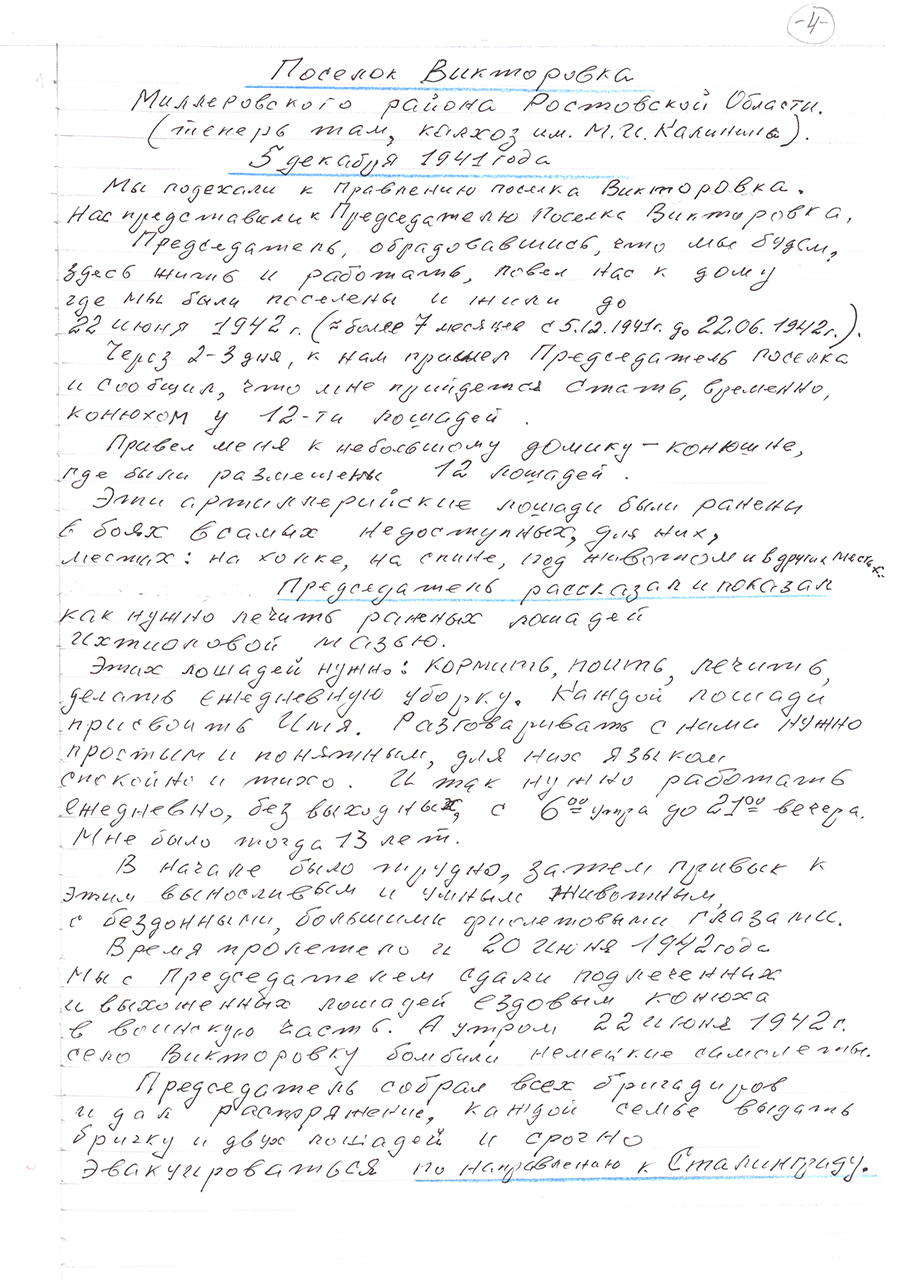 -4-
Поселок Викторовка
Миллеровского района Ростовской Области.
(теперь там, калхоз им. М.И. Калинина).
5 декабря 1941 года
Мы подехали к Правлению поселка Викторовка.
Нас представили к Председателю Поселка Викторовка.
Председатель, обрадовавшись, что мы будем,
здесь жить и работать, повел нас к дому
где мы были поселены и жили до
22 июня 1942 г. (≈ более 7 месяцев с 5.12.1941г. до 22.06.1942г.).
Через 2-3 дня, к нам пришел Председатель поселка
и сообщил, что мне прийдется стать, временно,
конюхом у 12-ти лошадей.
Привел меня к небольшому домику - конюшне,
где были размещены 12 лошадей.
Эти артиллерийские лошади были ранены
в боях в самых недоступных, для них,
местах: на холке, на спине, под животном и в других местах.
Председатель рассказал и показал
как нужно лечить раненых лошадей
ихтиоловой мазью.
Этих лошадей нужно: кормить, поить, лечить,
делать ежедневную уборку. Каждой лошади
присвоить Имя. Разговаривать с ними нужно
простым и понятным, для них языком
спокойно и тихо. И так нужно работать
ежедневно, без выходных, с 6⁰⁰ утра до 21⁰⁰ вечера.
Мне было тогда 13 лет.
В начале было трудно, затем привык к
этим выносливым и умным животным,
с бездонными, большими фиолетовыми глазами.
Время пролетело и 20 июня 1942 года
мы с Председателем сдали подлеченных
и выхоженных лошадей ездовым конюха
в воинскую часть. А утром 22 июня 1942 г.
село Викторовку бомбили немецкие самолеты.
Председатель собрал всех бригадиров
и дал распоряжение, каждой семье выдать
бричку и двух лошадей и срочно
эвакуироваться по направлению к Сталинграду.